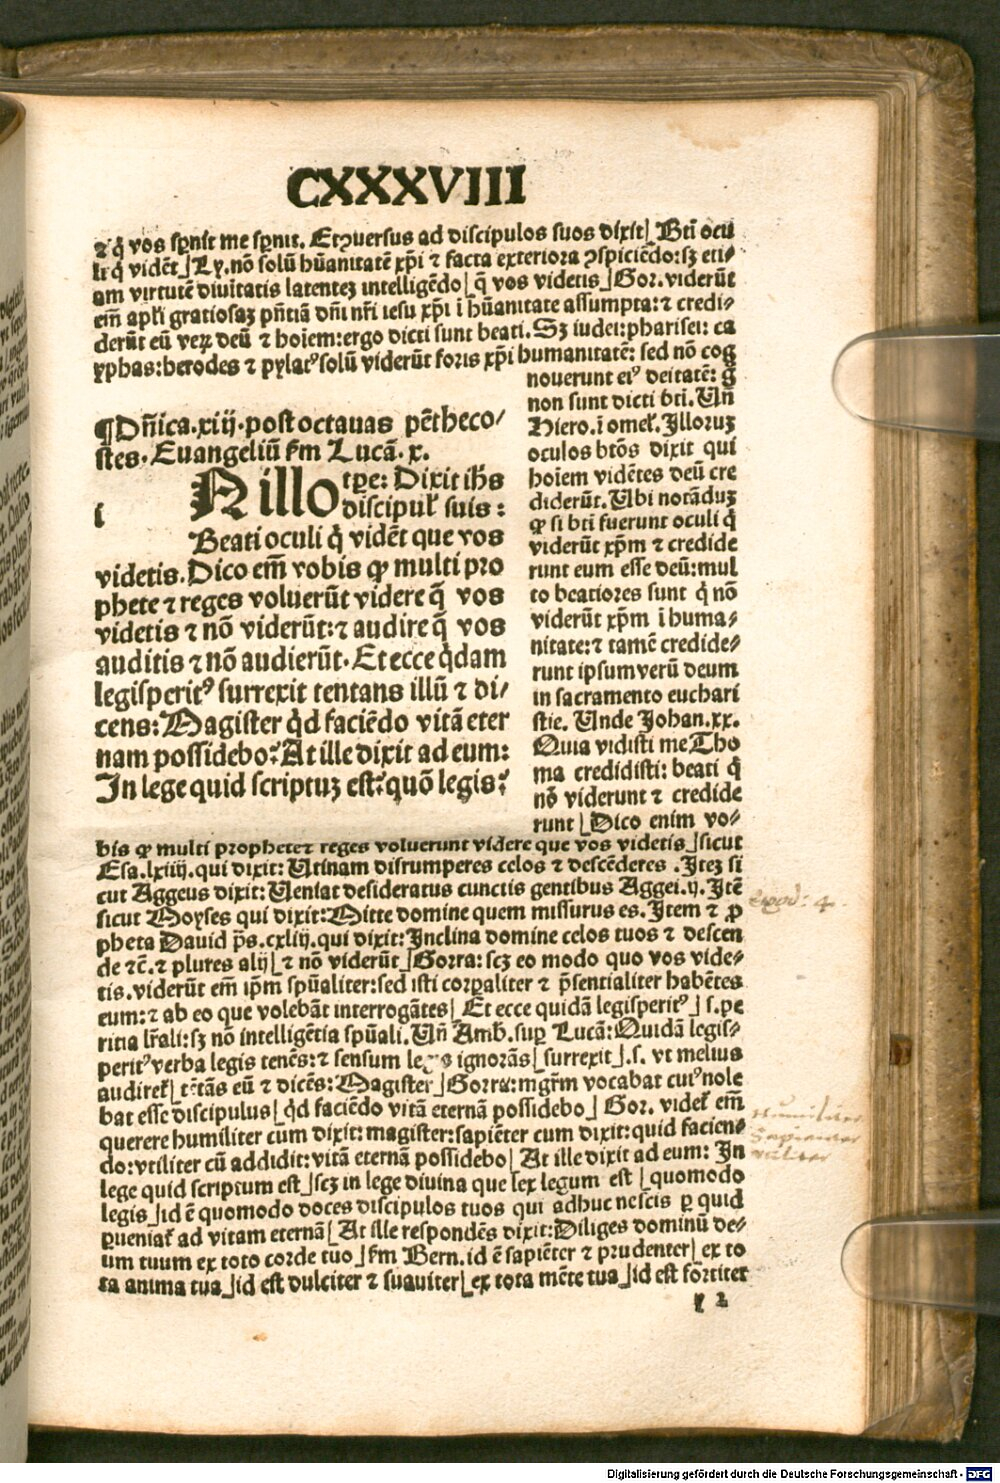 CXXXVIII
⁊ q̄ vos spnit me spnit. Et ꝯuersus ad discipulos suos dixit⌋ Bti ocu
li q̄ vidēt⌋ Ly. nō solū hūanitatē xp̄i ⁊ facta exteriora ꝯspiciēdo: sꝫ eti⸗
am virtutē diuītatis latentez intelligēdo⌊q̄ vos videtis⌋ Gor. viderūt
em̄ apl'i gratiosaz pn̄tiā dn̄i nr̄i iesu xp̄i ī hūanitate assumpta: ⁊ credi⸗
derūt eū veꝝ deū ⁊ hoiem: ergo dicti sunt beati. Sꝫ iudei: pharisei: ca
yphas: herodes ⁊ pylatꝰ solū viderūt foris xp̄i humanitatē: sed nō cog
nouerunt eiꝰ deitatē: q̄
non sunt dicti bti. Un̄
Hiero. ī omel'. Illoruꝫ
oculos btōs dixit qui
hoiem vidētes deū cre
diderūt. Ubi notāduꝫ
ꝙ si bti fuerunt oculi q̄
viderūt xp̄m ⁊ credide
runt eum esse deū: mul
to beatiores sunt q̄ nō
viderūt xp̄m ī huma⸗
nitate: ⁊ tamē credide⸗
runt ipsum verū deum
in sacramento euchari
stie. Unde Johan. xx.
Quia vidisti me Tho
ma credidisti: beati q̄
nō viderunt ⁊ credide
runt⌊Dico enim vo⸗
¶Dn̄ica.xiij.post octauas pēthe co/
stes. Euangeliū ẜm Lucā. x.
i
N illo tꝑe: Dixit ihs
discipul' suis:
Beati oculi q̄ vidēt que vos
videtis. Dico em̄ vobis ꝙ multi pro
phete ⁊ reges voluerūt videre q̄ vos
videtis ⁊ nō viderūt: ⁊ audire q̄ vos
auditis ⁊ nō audierūt. Et ecce q̇dam
legisperitꝰ surrexit tentans illū ⁊ di/
cens: Magister q̇d faciēdo vitā eter
nam possidebo? At ille dixit ad eum:
In lege quid scriptuꝫ est? quō legis?
bis ꝙ multi prophete ⁊ reges voluerunt videre que vos videtis⌋ sicut
Esa. lxiiij. qui dixit: Utinam disrumperes celos ⁊ descēderes. Iteꝫ si
cut Aggeus dixit: Ueniat desideratus cunctis gentibus Aggei. ij. Itē
sicut Moyses qui dixit: Mitte domine quem missurus es. Item ⁊ ꝓ
pheta Dauid ps. cxliij. qui dixit: Inclina domine celos tuos ⁊ descen
de ⁊c̄. ⁊ plures alij⌊⁊ nō viderūt⌋ Gorra: scꝫ eo modo quo vos vide⸗
tis. viderūt em̄ ip̄m spūaliter: sed isti corꝑaliter ⁊ p̄sentialiter habētes
eum: ⁊ ab eo que volebāt interrogātes⌋ Et ecce quidā legisperitꝰ⌋ s. pe
ritia lr̄ali: sꝫ nō intelligētia spūali. Un̄ Amb. suꝑ Lucā: Quidā legis⸗
peritꝰ verba legis tenēs: ⁊ sensum legis ignorās⌊surrexit⌋. s. vt melius
audiret⌊tētās eū ⁊ dicēs: Magister⌋ Gorra: mgr̄m vocabat cuiꝰ nole
bat esse discipulus⌊q̇d faciēdo vitā eternā possidebo⌋ Gor. videt' em̄
querere humiliter cum dixit: magister: sapiēter cum dixit: quid facien⸗
do: vtiliter cū addidit: vitā eternā possidebo⌊At ille dixit ad eum: In
lege quid scriptum est⌋ scꝫ in lege diuina que lex legum est⌊quomodo
legis⌋ id ē quomodo doces discipulos tuos qui adhuc nescis ꝑ quid
ꝑueniat' ad vitam eternā⌊At ille respondēs dixit: Diliges dominū de⸗
um tuum ex toto corde tuo⌋ ẜm Bern. id ē sapiēter ⁊ prudenter⌊ex to
ta anima tua⌋ id est dulciter ⁊ suauiter⌊ex tota mēte tua⌋ id est fortiter
y 2
Exod: 4.
Humiliter
Sapienter
vtiliter
Digitalisierung gefördert durch die Deutsche Forschungsgemeinschaft - DFG